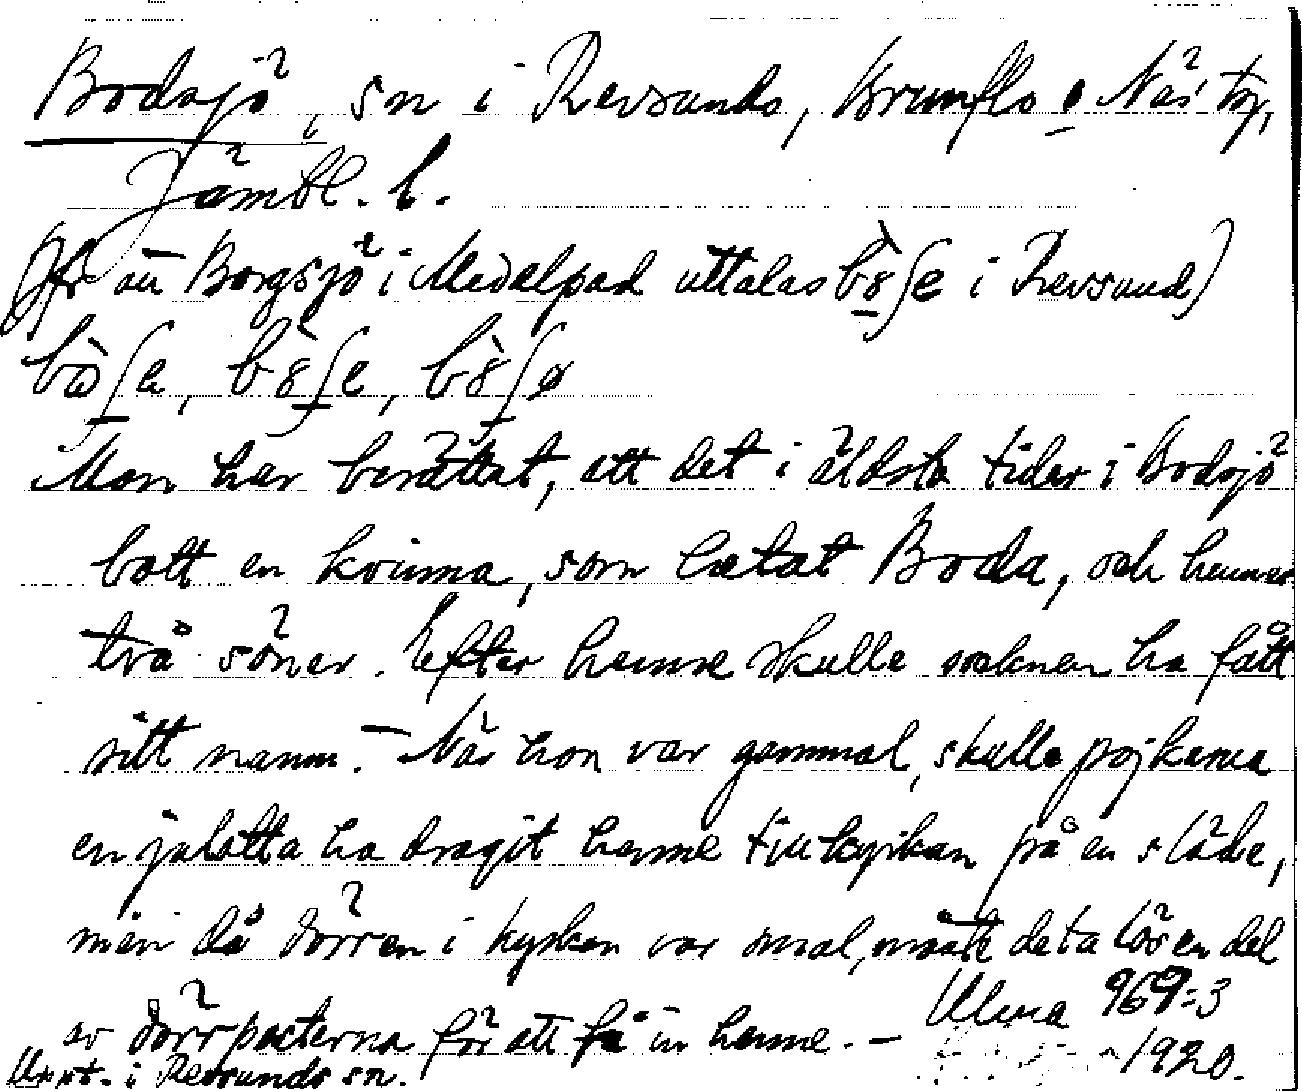 Bodsjö, sn i Revsunds, Brunflo o Näs' tg,
Jämtl. l.
(Jfr att Borgsjö i Medelpad uttalas bòʃe i Revsund)
Man har berättat, att det i äldsta tider i Bodsjö
bott en kvinna, som hetat Boda, och hennes
två söner. Efter henne skulle socknen ha fått
sitt namn. – När hon var gammal, skulle pojkarna
en julotta ha dragit henne till kyrkan på en släde,
men då dörren i kyrkan var smal, måste de ta lös en del
av dörrposterna för att få in henne. –
Ulma 969:3
1920.
Uppt. i Revsunds sn.